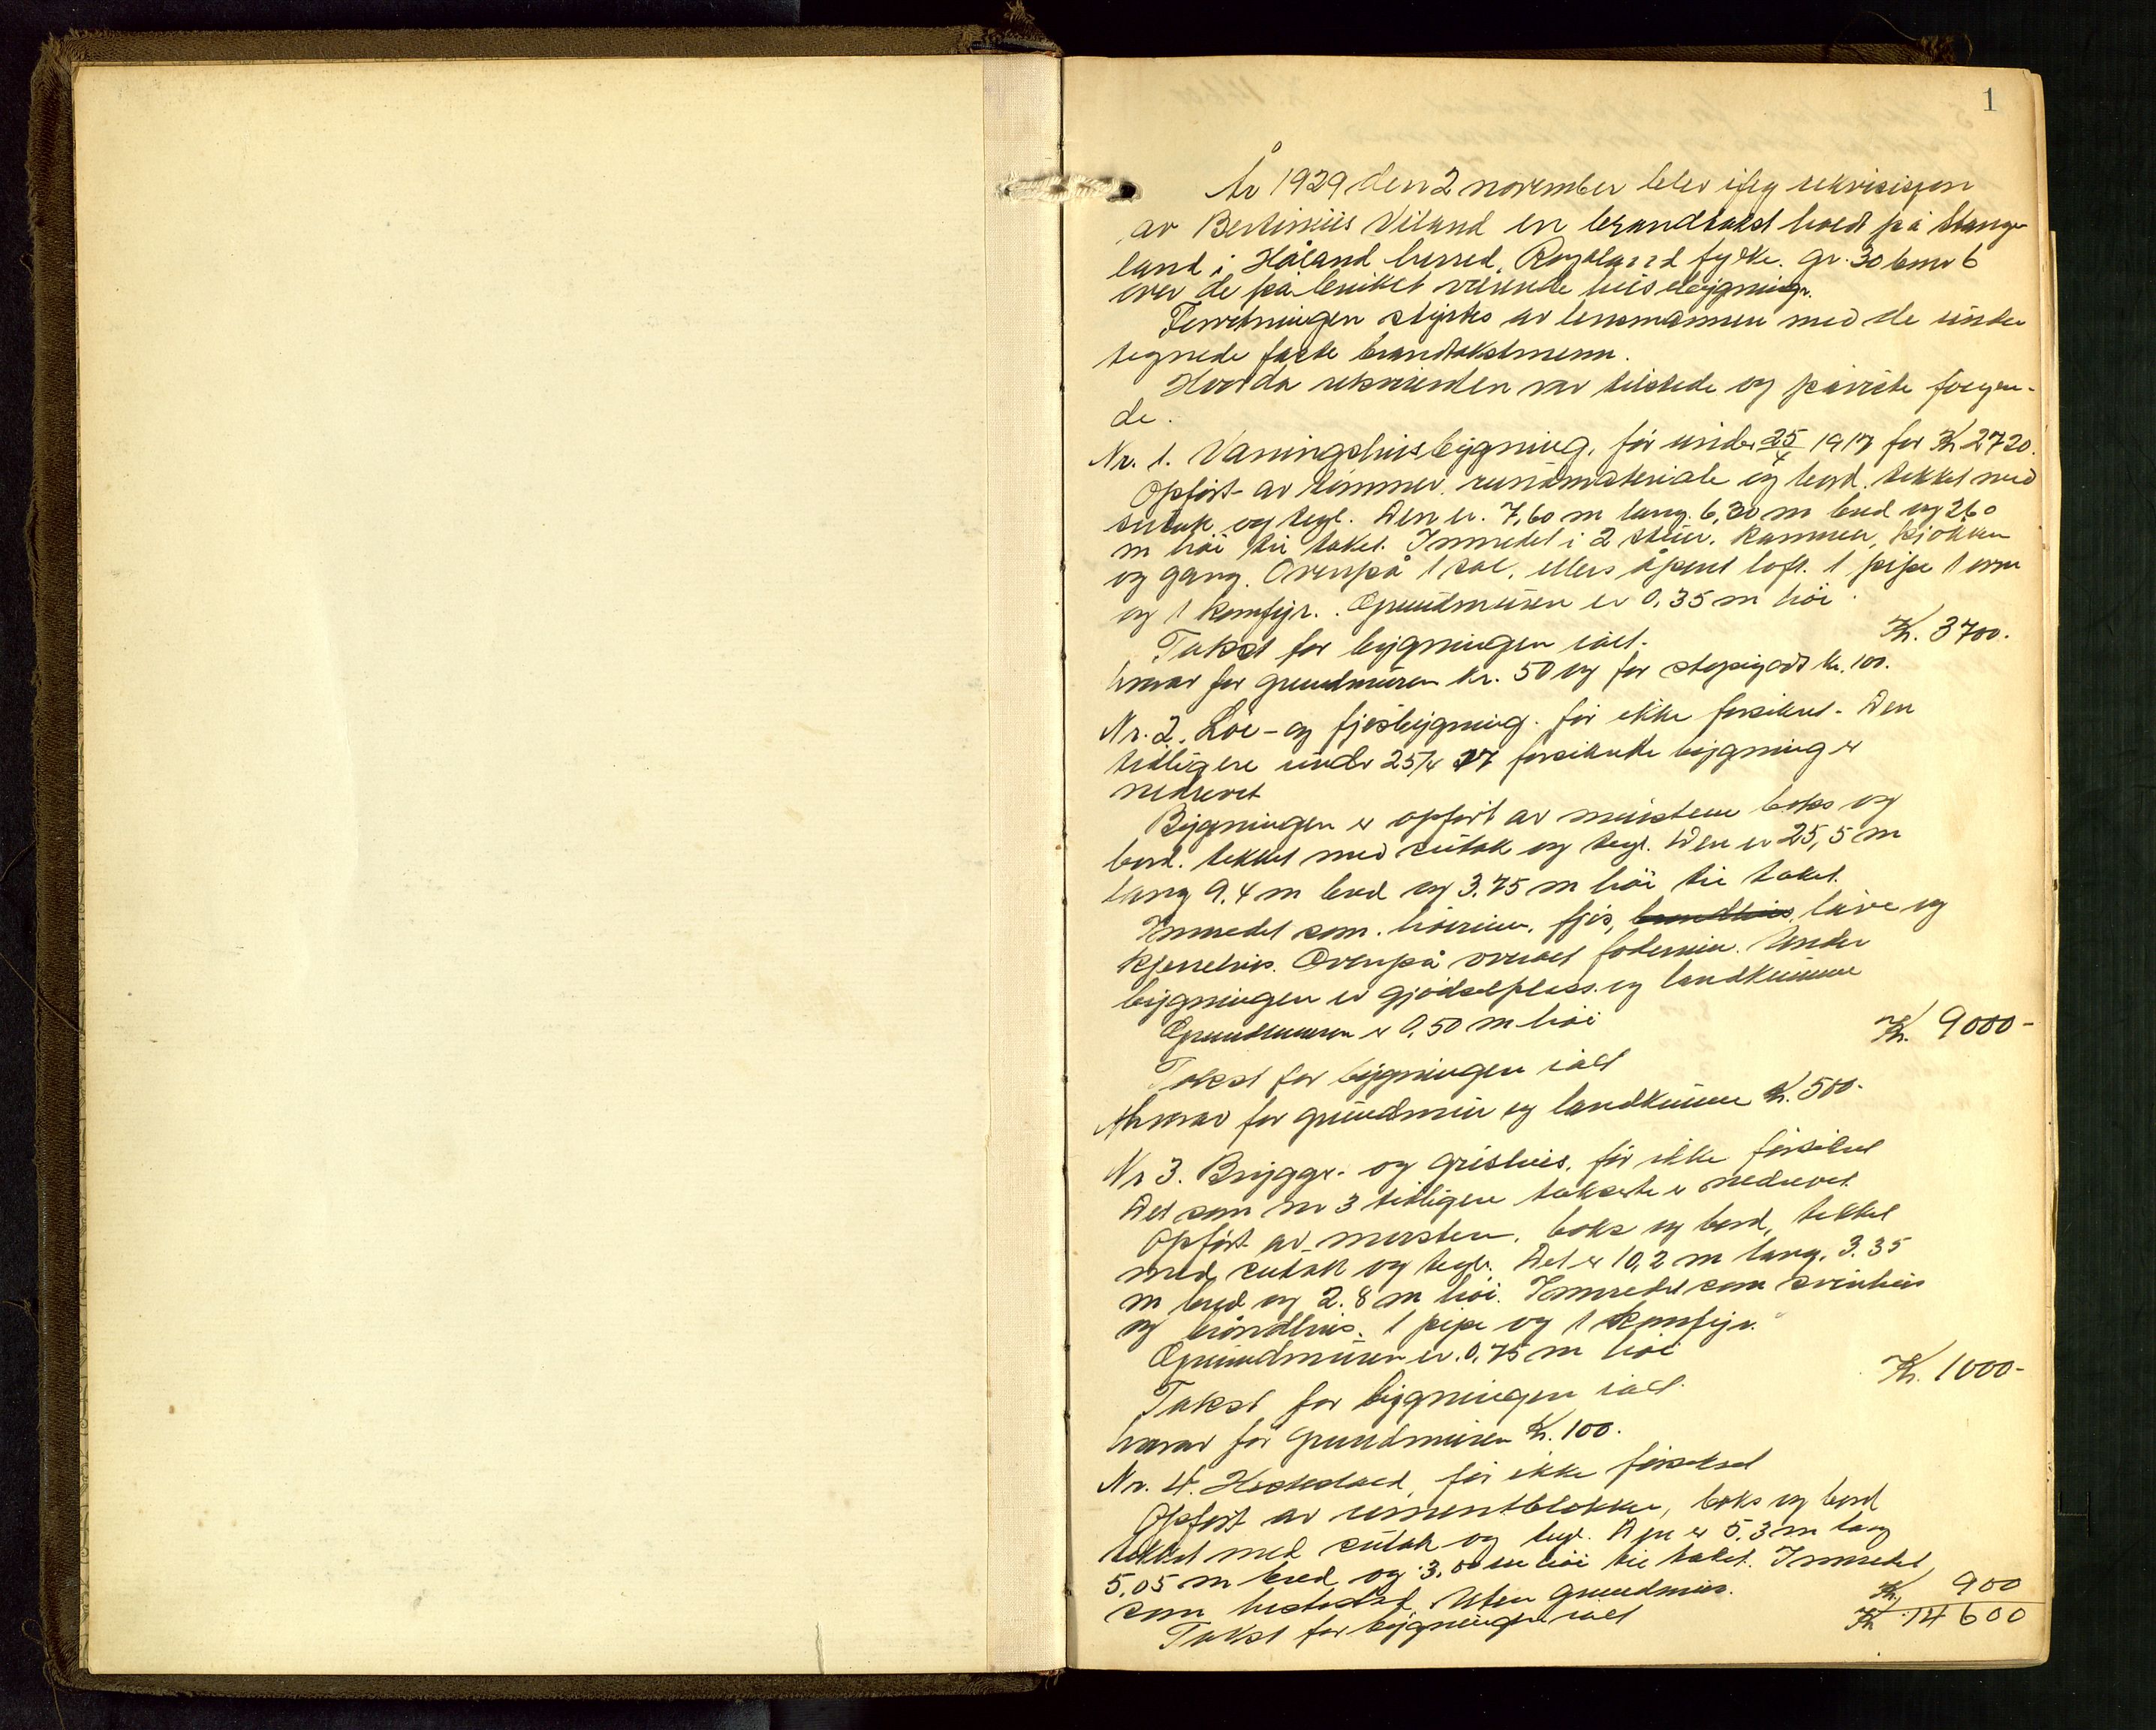 1
År 1929 den 2 november blev iflg rekvisisjon
av Bertinius Viland en brandtakst holdt på Stange-
land i Håland herred, Rogaland fylke. gr. 30 bnr 6
over de på bruket værende husebygninger.
Forretningen styrtes av lensmannen med de under
tegnede faste brandtakstmenn.
Hvorda rekvirenten var tilstede og påviste følgen-
de.
Nr. 1. Vaningshusbygning, før under 25/4 1917 for Kr 2720.
Opført av tømmer, rundmateriale og bord, tekket med
sutak og tegl. Den er 7,60 m lang. 6,30 m bred og 260
m høi til taket. Innredet i 2 stuer, kammer, kjøkken
og gang. Ovenpå 1 sal, ellers åpent loft. 1 pipe 1 ovn
og 1 komfyr. Grundmuren er 0,35 m høi.
Takst for bygningen ialt. Kr. 3700.
hvorav for grundmuren kr. 50 og for støpegods kr. 100.
Nr. 2. Løe- og fjøsbygning. før ikke forsikret. Den
tidligere under 25/4 17 forsikrete bygning er
nedrevet
Bygningen er opført av mursten boks og
bord. tekket med sutak og tegl. Den er 25,5 m
lang 9.4 m bred og 3.75 m høi til taket.
Innredet som høirum, fjøs, brondhus, låve og
kjerrehus. Ovenpå overalt foderrum. Under
bygningen er gjødselpless og landkumme
Grundmuren er 0,50 m høi
Takst for bygningen ialt Kr. 9000-
Hvorav for grundmur og landkumme Kr. 500-
Nr 3. Brygge- og grishus, før ikke forsikret
Det som nr 3 tidligere takserte er nedrevet
Opført av mursten, boks og bord, tekket
med sutak og tegl. Det er 10,2 m lang. 3.35
m bred og 2.8 m høi. Innredet som svinhus
og brøndhus. 1 pipe og 1 komfyr.
Grundmuren er 0,75 m høi
Takst for bygningen ialt. Kr. 1000-
hvorav for grundmuren Kr. 100.
Nr. 4. Hestestald, før ikke forsikret
Opført av sementblokker, boks og bord
tekket med sutak og tegl. Den er 5.3 m lang
5,05 m bred og 3,00 m høi til taket. Innredet
som hestestald. Uten grundmur.
Takst for bygningen ialt Kr. 900
Kr 14600